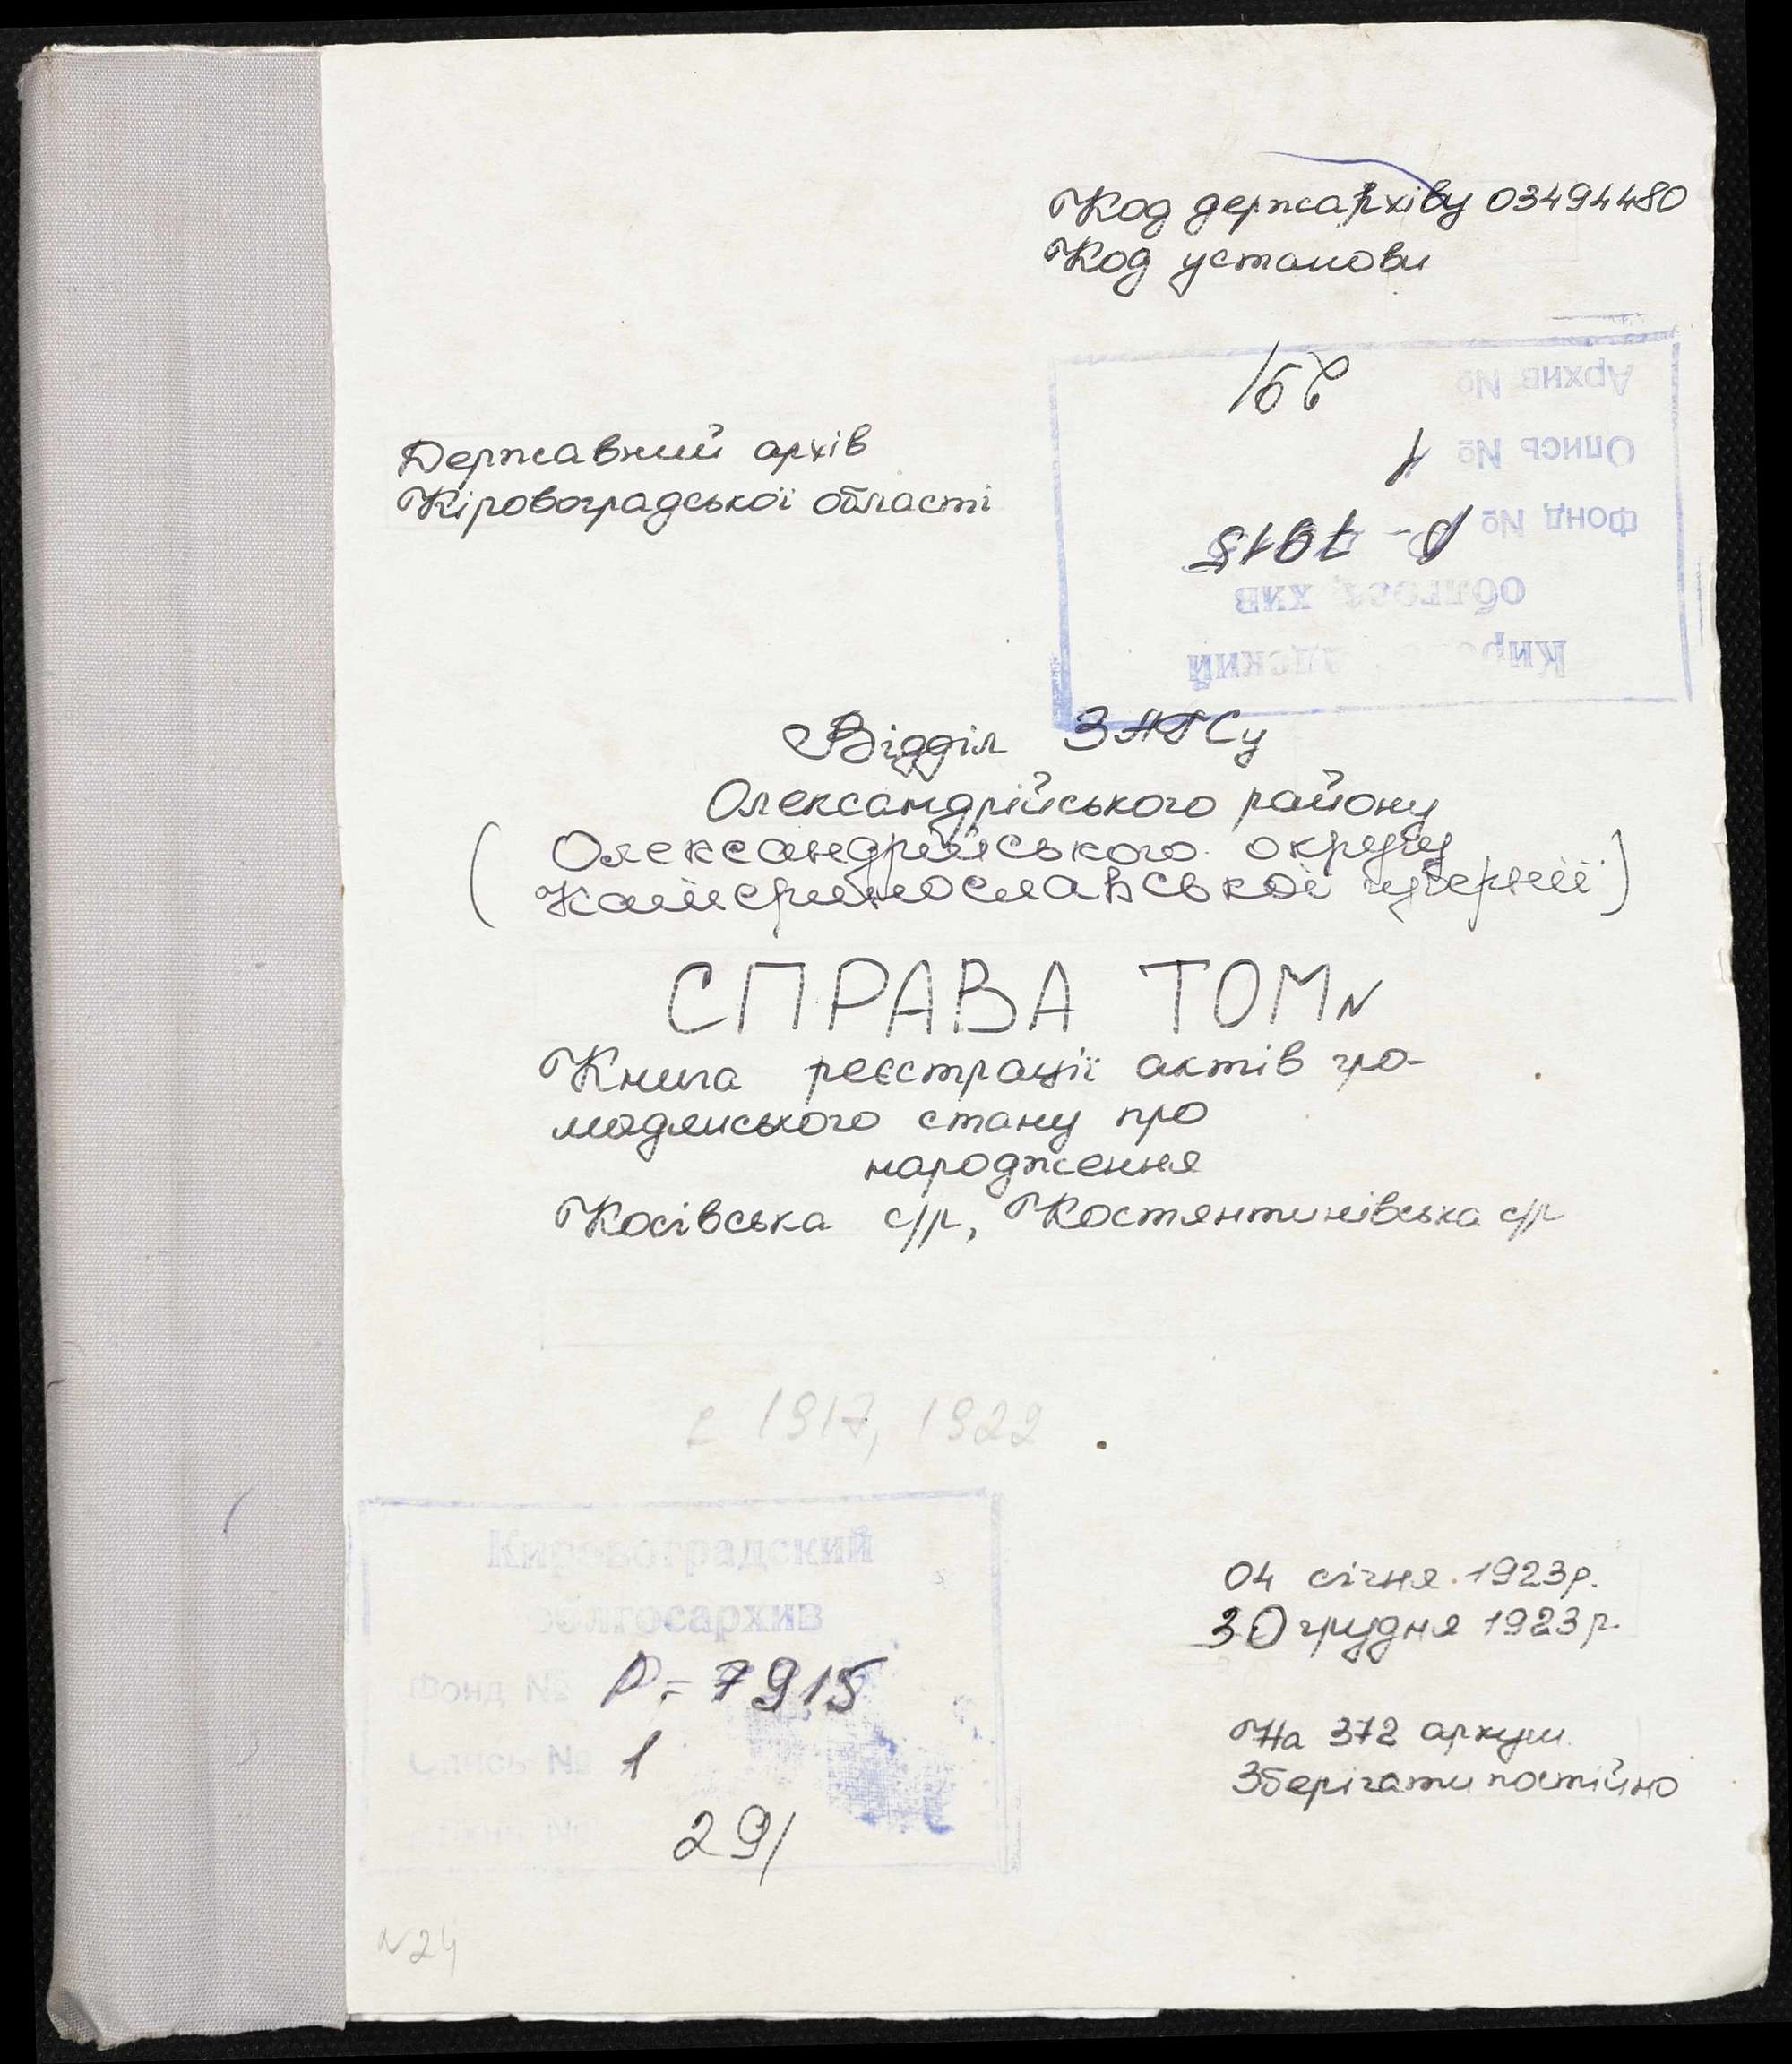 Код держархіву 03494480
Код установи
Архив № 291
Опись № 1
Фонд № Р-7915
облгос хив
Державний архів
Кіровоградської області
Відділ ЗАГСу
Олександрійського району
(Олександрійського округу
Катеринославської губернії)
СПРАВА ТОМ N
Книга реєстрації актів гро-
мадянського стану про
народження
Косівська с/р, Костянтинівська с/р
є 1917, 1922
Кировоградский
облгосархив
Фонд № Р-7915
Опись № 1
291
04 січня 1923р.
30 грудня 1923р.
На 372 аркуш
Зберігати постійно
N24